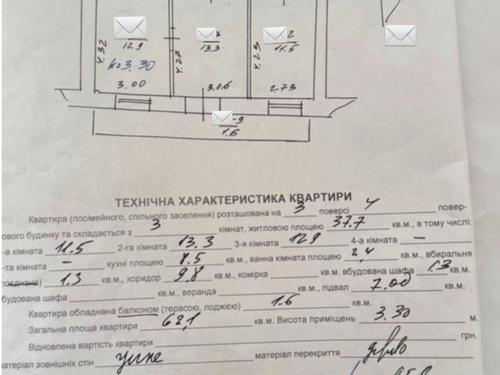 2
12.9 13.3 11.5
4.32 4.27 4.25
h=3.30
3.00 3.06 2.73
1.6
ТЕХНІЧНА ХАРАКТЕРИСТИКА КВАРТИРИ
Квартира (посімейного, спільного заселення) розташована на 3 поверсі 4 повер-
ового будинку та складається з 3 кімнат, житловою площею 37.7 кв.м., в тому числі:
-а кімната 11.5 2-га кімната 13.3 3-я кімната 12.9 4-а кімната –
-та кімната – кухні площею 8.5 кв.м., ванна кімната площею 2,4 кв.м., вбиральня
поєднано) 1.3 кв.м., коридор 9.8 кв.м., комірка кв.м., вбудована шафа 1.3 кв.м.
будована шафа кв.м., веранда кв.м., підвал 7.00 кв.м.
Квартира обладнана балконом (терасою, лоджією) 1.6 кв.м.
Загальна площа квартири 62,1 кв.м. Висота приміщень 3.30 м.
Відновлена вартість квартири грн.
матеріал зовнішніх стін матеріал перекриття